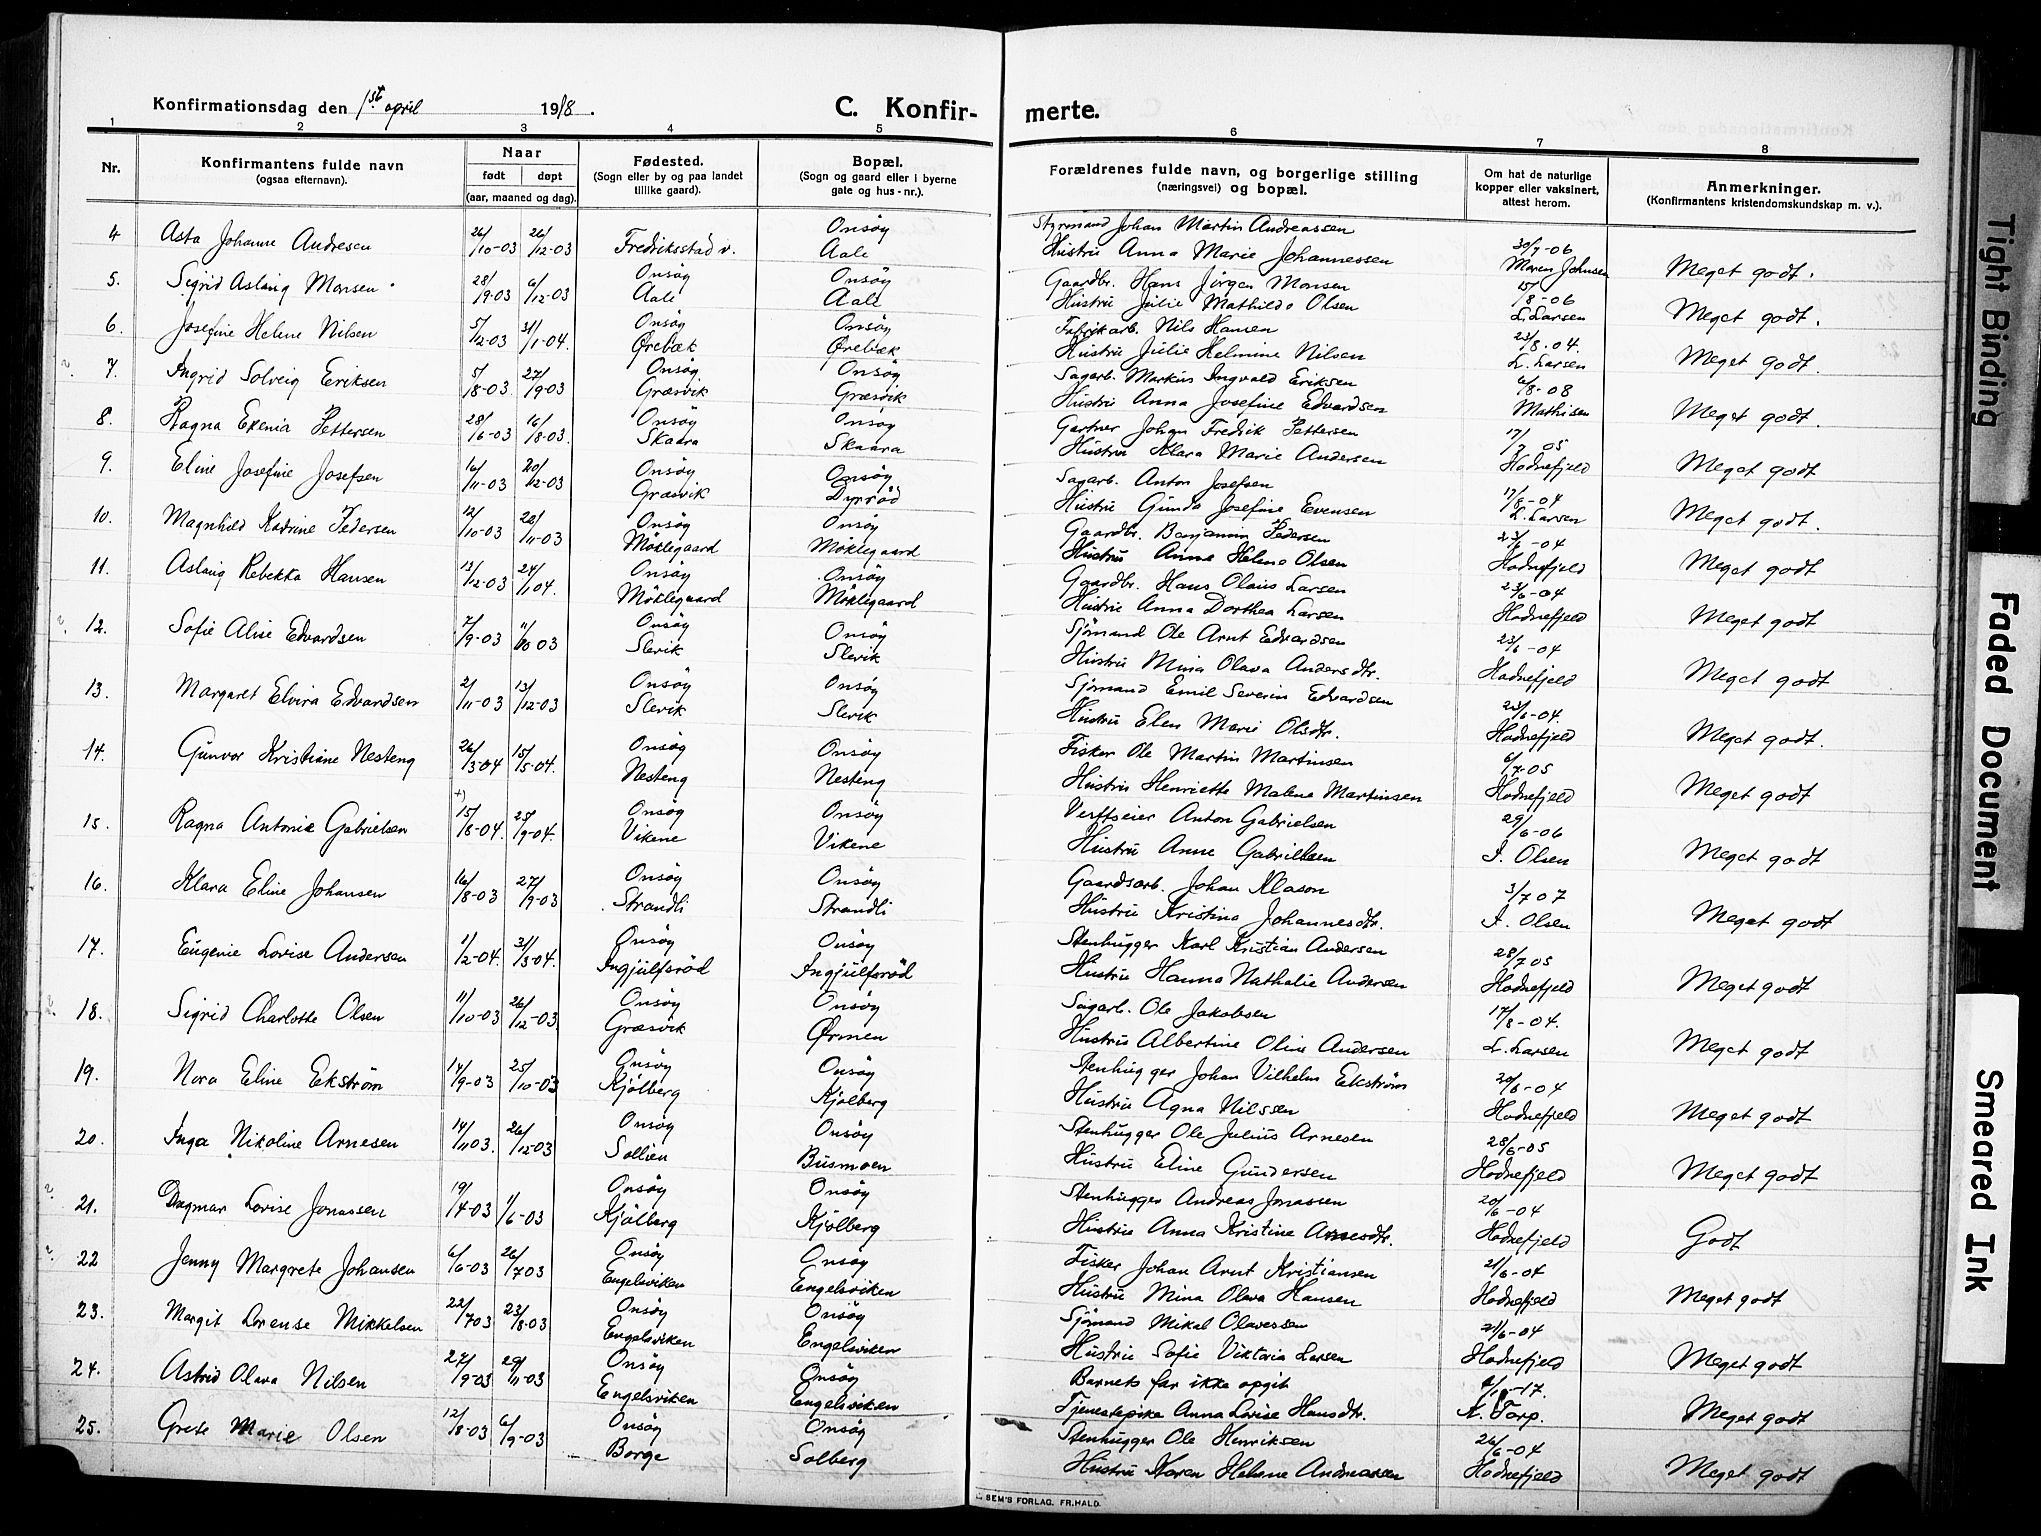 Konfirmationsdag den 1ste april 1918. C. Konfir- merte.
1 2 3 4 5 6 7 8
Nr. Konfirmantens fulde navn (ogsaa efternavn). Naar født døpt (aar, maaned og dag). Fødested. (Sogn eller by og paa landet tillike gaard). Bopæl. (Sogn og gaard eller i byerne gate og hus - nr.). Forældrenes fulde navn, og borgerlige stilling (næringsvei) og bopæl. Om hat de naturlige kopper eller vaksinert, attest herom. Anmerkninger. (Konfirmantens kristendomskundskap m. v.).
4 Asta Johanne Andresen 26/10-03 26/12-03 Fredriksstad v. Onsöy Aale Styrmand Johan Martin Andreassen
Hustru Anna Marie Johannessen 30/7-06 Maren Johnsen Meget godt.
5. Sigrid Aslaug Monsen 28/9-03 6/12-03 Onsöy Aale Onsöy Aale Gaardbr. Hans Jörgen Monsen
Hustru Julie Mathilde Olsen 15/8-06 L. Larsen Meget godt.
6. Josefine Helene Nilsen 5/12-03 31/1-04. Onsöy Ørebæk Onsöy Ørebæk Fabrikarb. Nils Hansen
Hustru Julie Helmine Nilsen 23/8.04. L. Larsen Meget godt.
7. Ingrid Solveig Eriksen 5/8-03 27/9-03 Onsöy Græsvik Onsöy Græsvik Sagarb. Markus Ingvald Eriksen
Hustru Anna Josefine Edvardsen 6/8-08 Mathisen Meget godt.
8. Ragna Exenia Pettersen 28/6-03 16/8-03. Onsöy Skaara Onsöy Skaara Gartner Johan Fredrik Pettersen
Hustru Klara Marie Andersen 17/7 05 Hodnefjeld Meget godt
9. Eline Josefine Josefsen 16/11-03 20/12-03 Onsöy Græsvik Onsöy Dyrröd Sagarb. Anton Josefsen
Hustru Gunda Josefine Evensen 17/8-04 L. Larsen Meget godt.
10. Magnhild Katrine Pedersen 12/10-03 22/11-03 Onsöy Möklegaard Onsöy Möklegaard Gaardbr. Benjamin Pedersen
Hustru Anne Helene Olsen 23/6-04 Hodnefjeld Meget godt
11. Aslaug Rebekka Hansen 13/12-03 24/1 04. Onsöy Möklegaard Onsöy Möklegaard Gaardbr. Hans Olaus Larsen
Hustru Anna Dorthea Larsen 23/6-04 Hodnefjeld Meget godt
12. Sofie Alise Edvardsen 7/9-03 11/10 03 Onsöy Slevik Onsöy Slevik Sjömand Ole Arnt Edvardsen
Hustru Mina Olava Andersdtr. 23/6-04 Hodnefjeld Meget godt
13. Margaret Elvira Edvardsen 2/11-03 13/12-03 Onsöy Slevik Onsöy Slevik Sjömand Emil Severin Edvardsen
Hustru Elen Marie Olsdtr. 23/6-04. Hodnefjeld Meget godt.
14. Gunvor Kristiane Nesteng 26/3-04 15/5-04. Onsöy Nesteng Onsöy Nesteng Fisker Ole Martin Martinsen
Hustru Henriette Malene Martinsen 6/7-05 Hodnefjeld Meget godt
15. Ragna Antonie Gabrielsen +) 15/8-04. 25/9-04. Onsöy Vikene Onsöy Vikene Verftseier Anton Gabrielsen
Hustru Anne Gabrielsen 29/6-06 I. Olsen Meget godt
16. Klara Eline Johansen 16/8-03 27/9-03 Onsöy Strandli Onsöy Strandli Gaardsarb. Johan Klason
Hustru Kristina Johannesdtr. 3/7 07 I. Olsen Meget godt
17. Eugenie Lovise Andersen 1/2-04. 31/3-04. Onsöy Ingjulfsröd Onsöy Ingjulfsröd Stenhugger Karl Kristian Andersen
Hustru Hanna Nathalie Andersen 28/7 05 Hodnefjeld Meget godt
18. Sigrid Charlotte Olsen 11/10-03 26/12-03. Onsöy Græsvik Onsöy Ørmen Sagarb. Ole Jakobsen
Hustru Albertine Oline Andersen 17/8-04. L. Larsen Meget godt
19. Nora Eline Ekström 14/9-03 25/10-03 Onsöy Kjölberg Onsöy Kjölberg Stenhugger Johan Vilhelm Ekström
Hustru Agna Nilssen 20/6-04 Hodnefjeld Meget godt
20. Inga Nikoline Arnesen 14/11 03. 26/12-03 Onsöy Sollien Onsöy Busmoen Stenhugger Ole Julius Arnesen
Hustru Eline Gundersen 28/6-05 Hodnefjeld Meget godt
21. Dagmar Lovise Jonassen 19/4-03 1/6-03 Onsöy Kjölberg Onsöy Kjölberg Stenhugger Andreas Jonassen
Hustru Anna Kristine Arnesdtr. 20/6-04 Hodnefjeld Godt
22 Jenny Margrete Johansen 6/6-03 26/7 03 Onsöy Engelsviken Onsöy Engelsviken Fisker Johan Arnt Kristiansen
Hustru Mina Olava Hansen 21/6-04 Hodnefjeld Meget godt
23. Margit Lorense Mikkelsen 22/7 03 23/8-03 Onsöy Engelsviken Onsöy Engelsviken Sjömand Mikal Olavessen
Hustru Sofie Viktoria Larsen 21/6-04 Hodnefjeld Meget godt
24. Astrid Olava Nilsen 27/9-03 29/11-03 Onsöy Engelsviken Onsöy Engelsviken Barnets far ikke opgit
Tjenestepike Anna Lovise Hansdtr. -17. Torp. Meget godt
25. Grete Marie Olsen 12/8-03 6/9-03 Onsöy Borge Onsöy Solberg Stenhugger Ole Henriksen
Hustru Karen Helene Andreassen 26/6-04 Hodnefjeld Meget godt
SEM'S FORLAG. FR.HALD.
Tight Binding
Faded Document
Smeared Ink